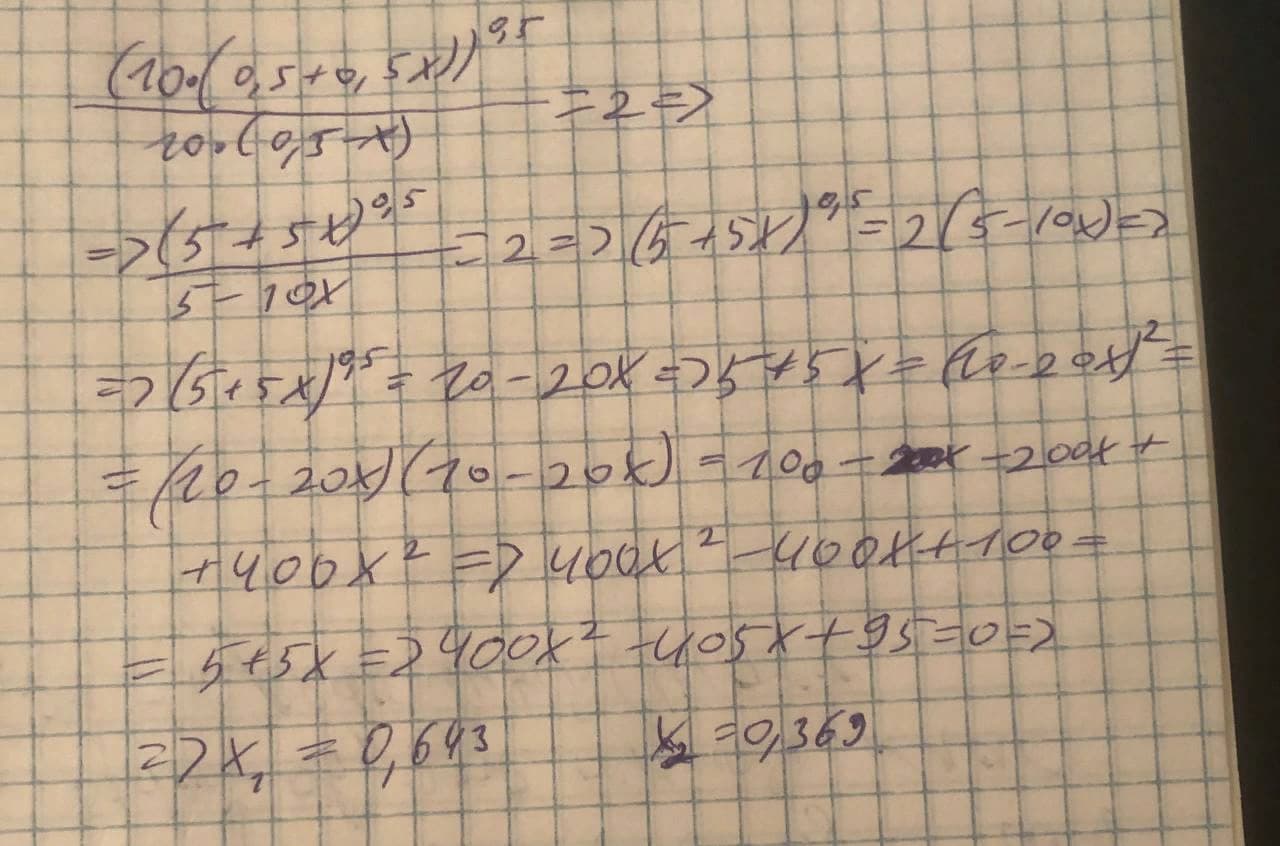 (10·(0,5+0,5x))^0,5 / 10·(0,5-x) = 2 =>
=> (5+5x)^0,5 / 5-10x = 2 => (5+5x)^0,5 = 2(5-10x) =>
=> (5+5x)^0,5 = 10-20x => 5+5x = (10-20x)² =
= (10-20x)(10-20x) = 100 - -200x +
+400x² => 400x² -400x+100 =
= 5+5x => 400x² -405x+95=0 =>
=> x₁ = 0,643 x₂ = 0,369.